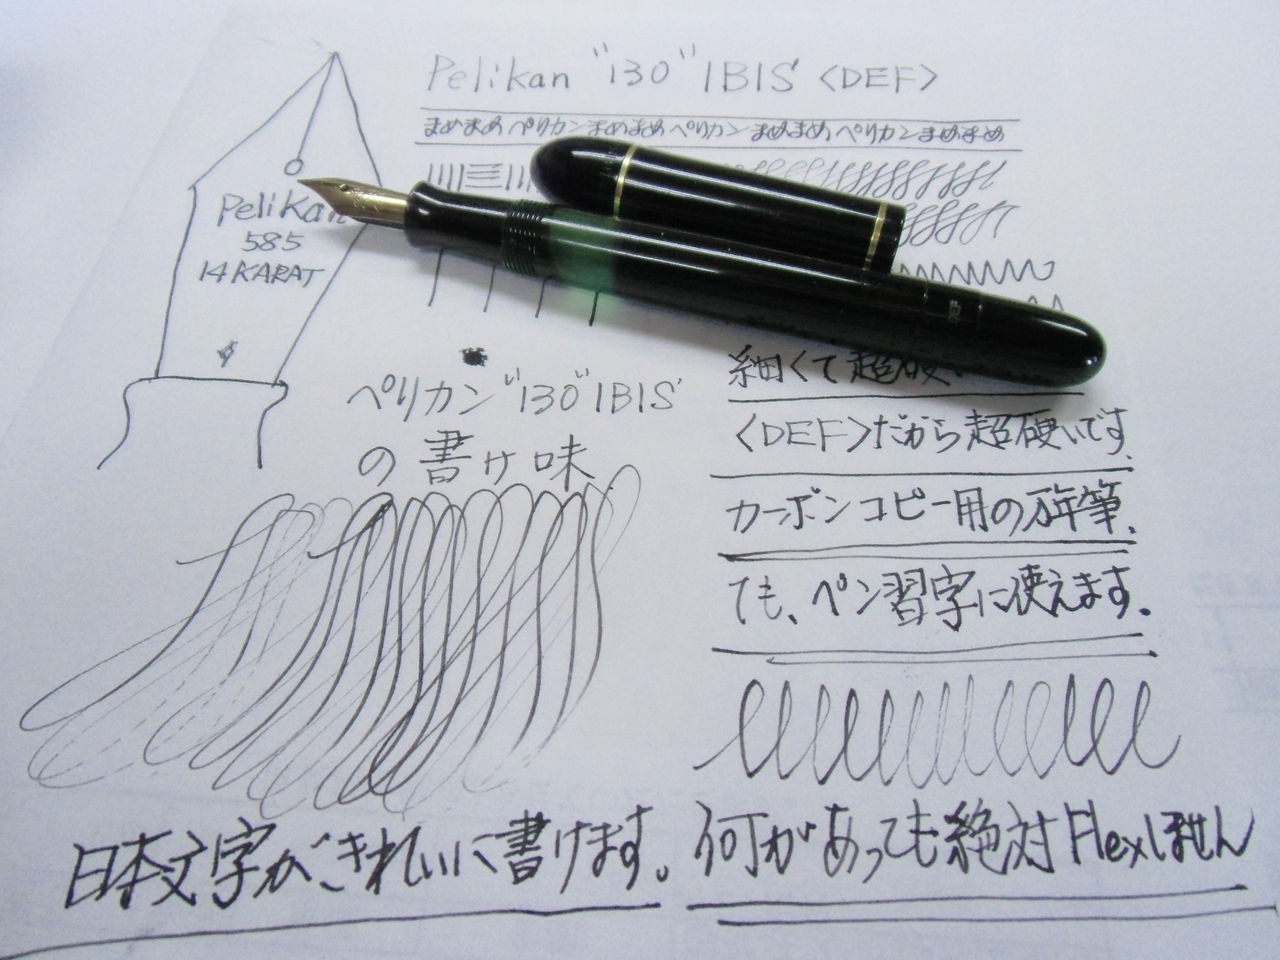 Pelikan "130" IBIS <DEF>
まめまめペリカンまめまめペリカンまめまめペリカンまめまめ
Pelikan
585
14 KARAT
ペリカン"130"IBIS
の書け味
細くて超硬
<DEF>だから超硬いです
カーボンコピー用の万年筆、
ても、ペン習字に使えます。
日本文字がきれいに書けます。何があっても絶対Flexしません
DEF